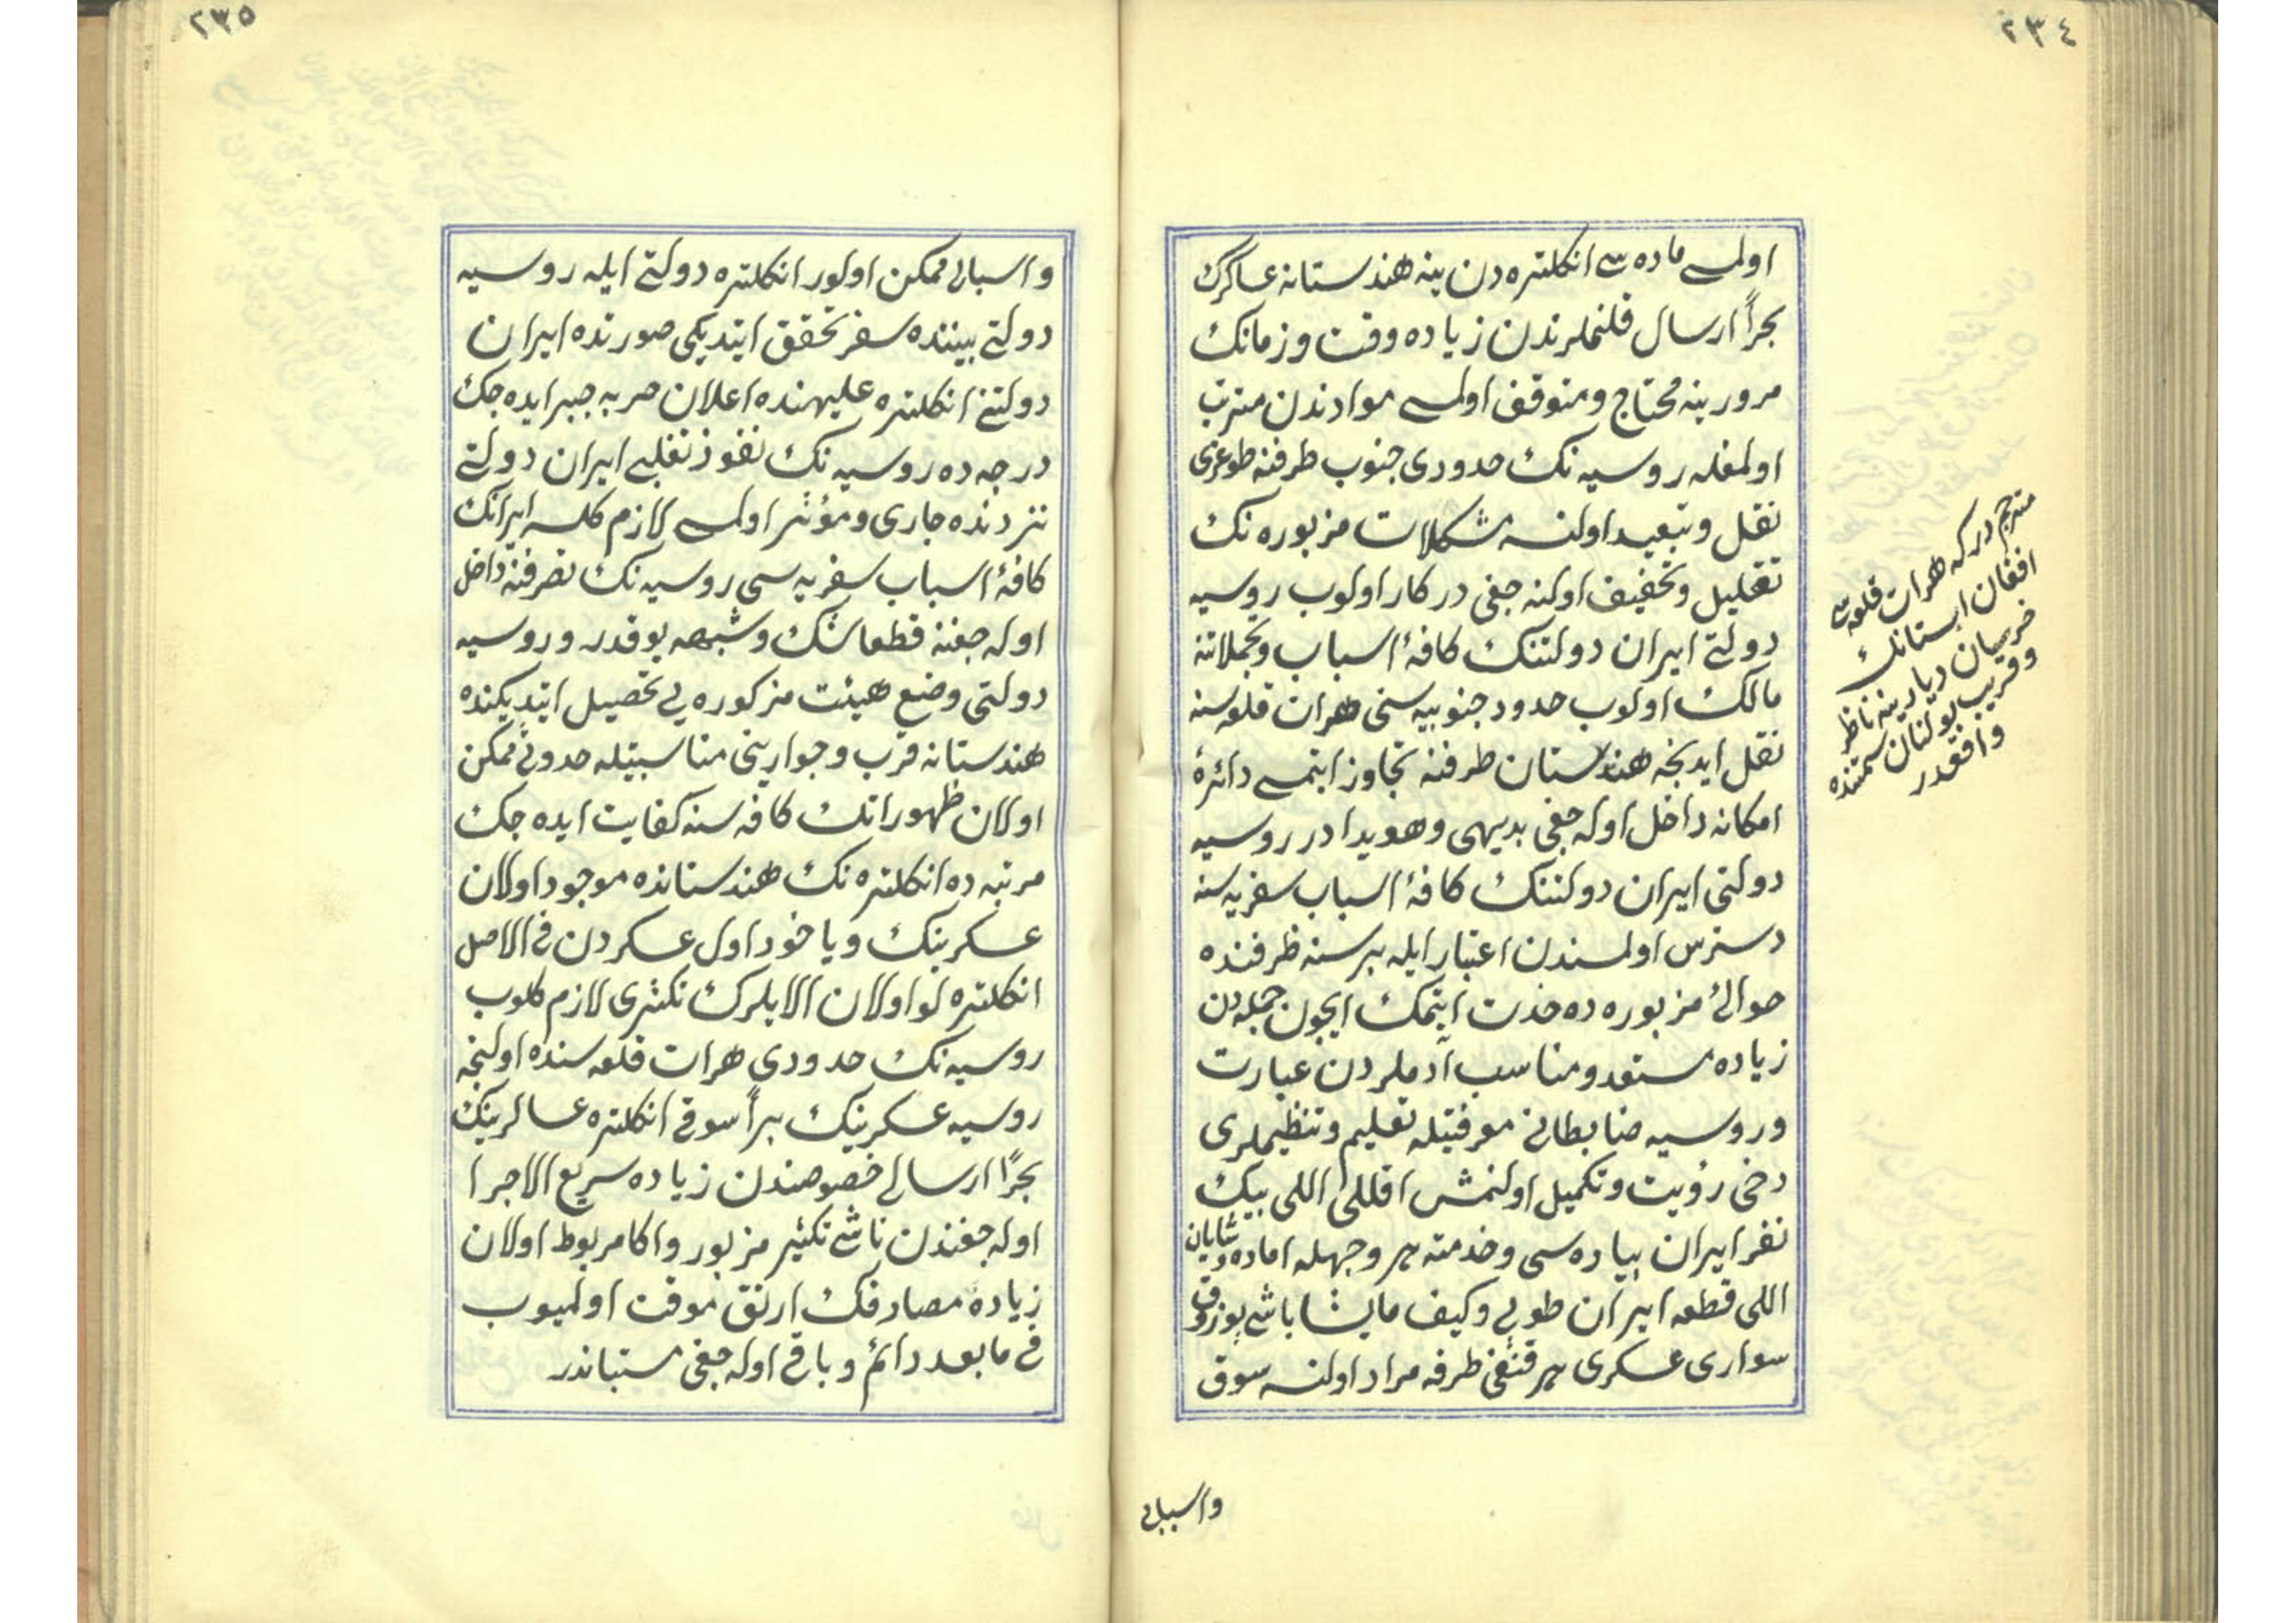 ٢٣٤
اولمسی ماده سی انكلتره دن ینه هندستانه عساكرك
بحراً ارسال قلنملرندن زیاده وقت وزمانك
مرورینه محتاج ومتوقف اولمسی موادندن مترتب
اولمغله روسیه نك حدودی جنوب طرفنه طوغری
نقل وتبعید اولنسه مشكلات مزبوره نك
تقلیل وتخفیف اولنه جغی دركار اولوب روسیه
دولتی ایران دولتنك كافهٔ اسباب وتجملاتنه
مالك اولوب حدود جنوبیه سنی هرات قلعه سنه
نقل ایدنجه هندستان طرفنه تجاوز ایتمسی دائرهٔ
امكانه داخل اوله جغی بدیهی وهویدا در روسیه
دولتی ایران دولتنك كافهٔ اسباب سفریه سنه
دسترس اولمسندن اعتبار ایله بر سنه ظرفنده
حوالیٔ مزبوره ده خدمت ایتمك ایچون جمله دن
زیاده مستعد ومناسب آدملردن عبارت
وروسیه ضابطانی معرفتیله تعلیم وتنظیملری
دخی رؤیت وتكمیل اولنمش اقللی اللی بیك
نفر ایران پیاده سی وخدمته هر وجهله اماده وشایان
اللی قطعه ایران طوپی وكیف مایشا باشی بوزوق
سواری عسكری هر قنغی طرفه مراد اولنسه سوق
مترجم دركه هرات قلعه سی
افغانستانك
خرسیان دیارینه ناظر
وقریب بولنان سمتنده
واقعدر
واسبالی
٢٣٥
واسبالی ممكن اولور انكلتره دولتی ایله روسیه
دولتی بیننده سفر تحقق ایتدیكی صورتده ایران
دولتنی انكلتره علیهنده اعلان حربه جبر ایده جك
درجه ده روسیه نك نفوذ تغلبی ایران دولتی
نزدنده جاری ومؤثر اولمسی لازم كلسه ایرانك
كافهٔ اسباب سفریه سی روسیه نك تصرفنه داخل
اوله جغنه قطعا شك وشبهه یوقدر وروسیه
دولتی وضع هیئت مذكوره یی تحصیل ایتدیكنده
هندستانه قرب وجوارینی مناسبتیله حدوثی ممكن
اولان ظهوراتك كافه سنه كفایت ایده جك
مرتبه ده انكلتره نك هندستانده موجود اولان
عسكرینك ویاخود اول عسكردن فی الاصل
انكلتره لو اولان الایلرك تكثری لازم كلوب
روسیه نك حدودی هرات قلعه سنده اولنجه
روسیه عسكرینك براً سوقی انكلتره عساكرینك
بحراً ارسالی خصوصندن زیاده سریع الاجرا
اوله جغندن ناشی تكثیر مزبور واكا مربوط اولان
زیاده مصارفك ارتق موقت اولمیوب
فی مابعد دائم وباقی اوله جغی مستباندر